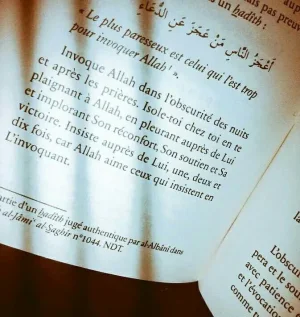 un hadîth :
أَعْجَزُ النَّاسِ مَنْ عَجَزَ عَنِ الدُّعَاءِ
« Le plus paresseux est celui qui l'est trop
pour invoquer Allah ! ».
Invoque Allah dans l'obscurité des nuits
et après les prières. Isole-toi chez toi en te
plaignant à Allah, en pleurant auprès de Lui
et implorant Son réconfort, Son soutien et Sa
victoire. Insiste auprès de Lui, une, deux et
dix fois, car Allah aime ceux qui insistent en
L'invoquant.
d'un hadîth jugé authentique par al-Albânî dans
al-Jâmi' al-Saghîr n°1044. NDT.
L'obsc
pera et le sou
avec patience
et l'évocation
comme